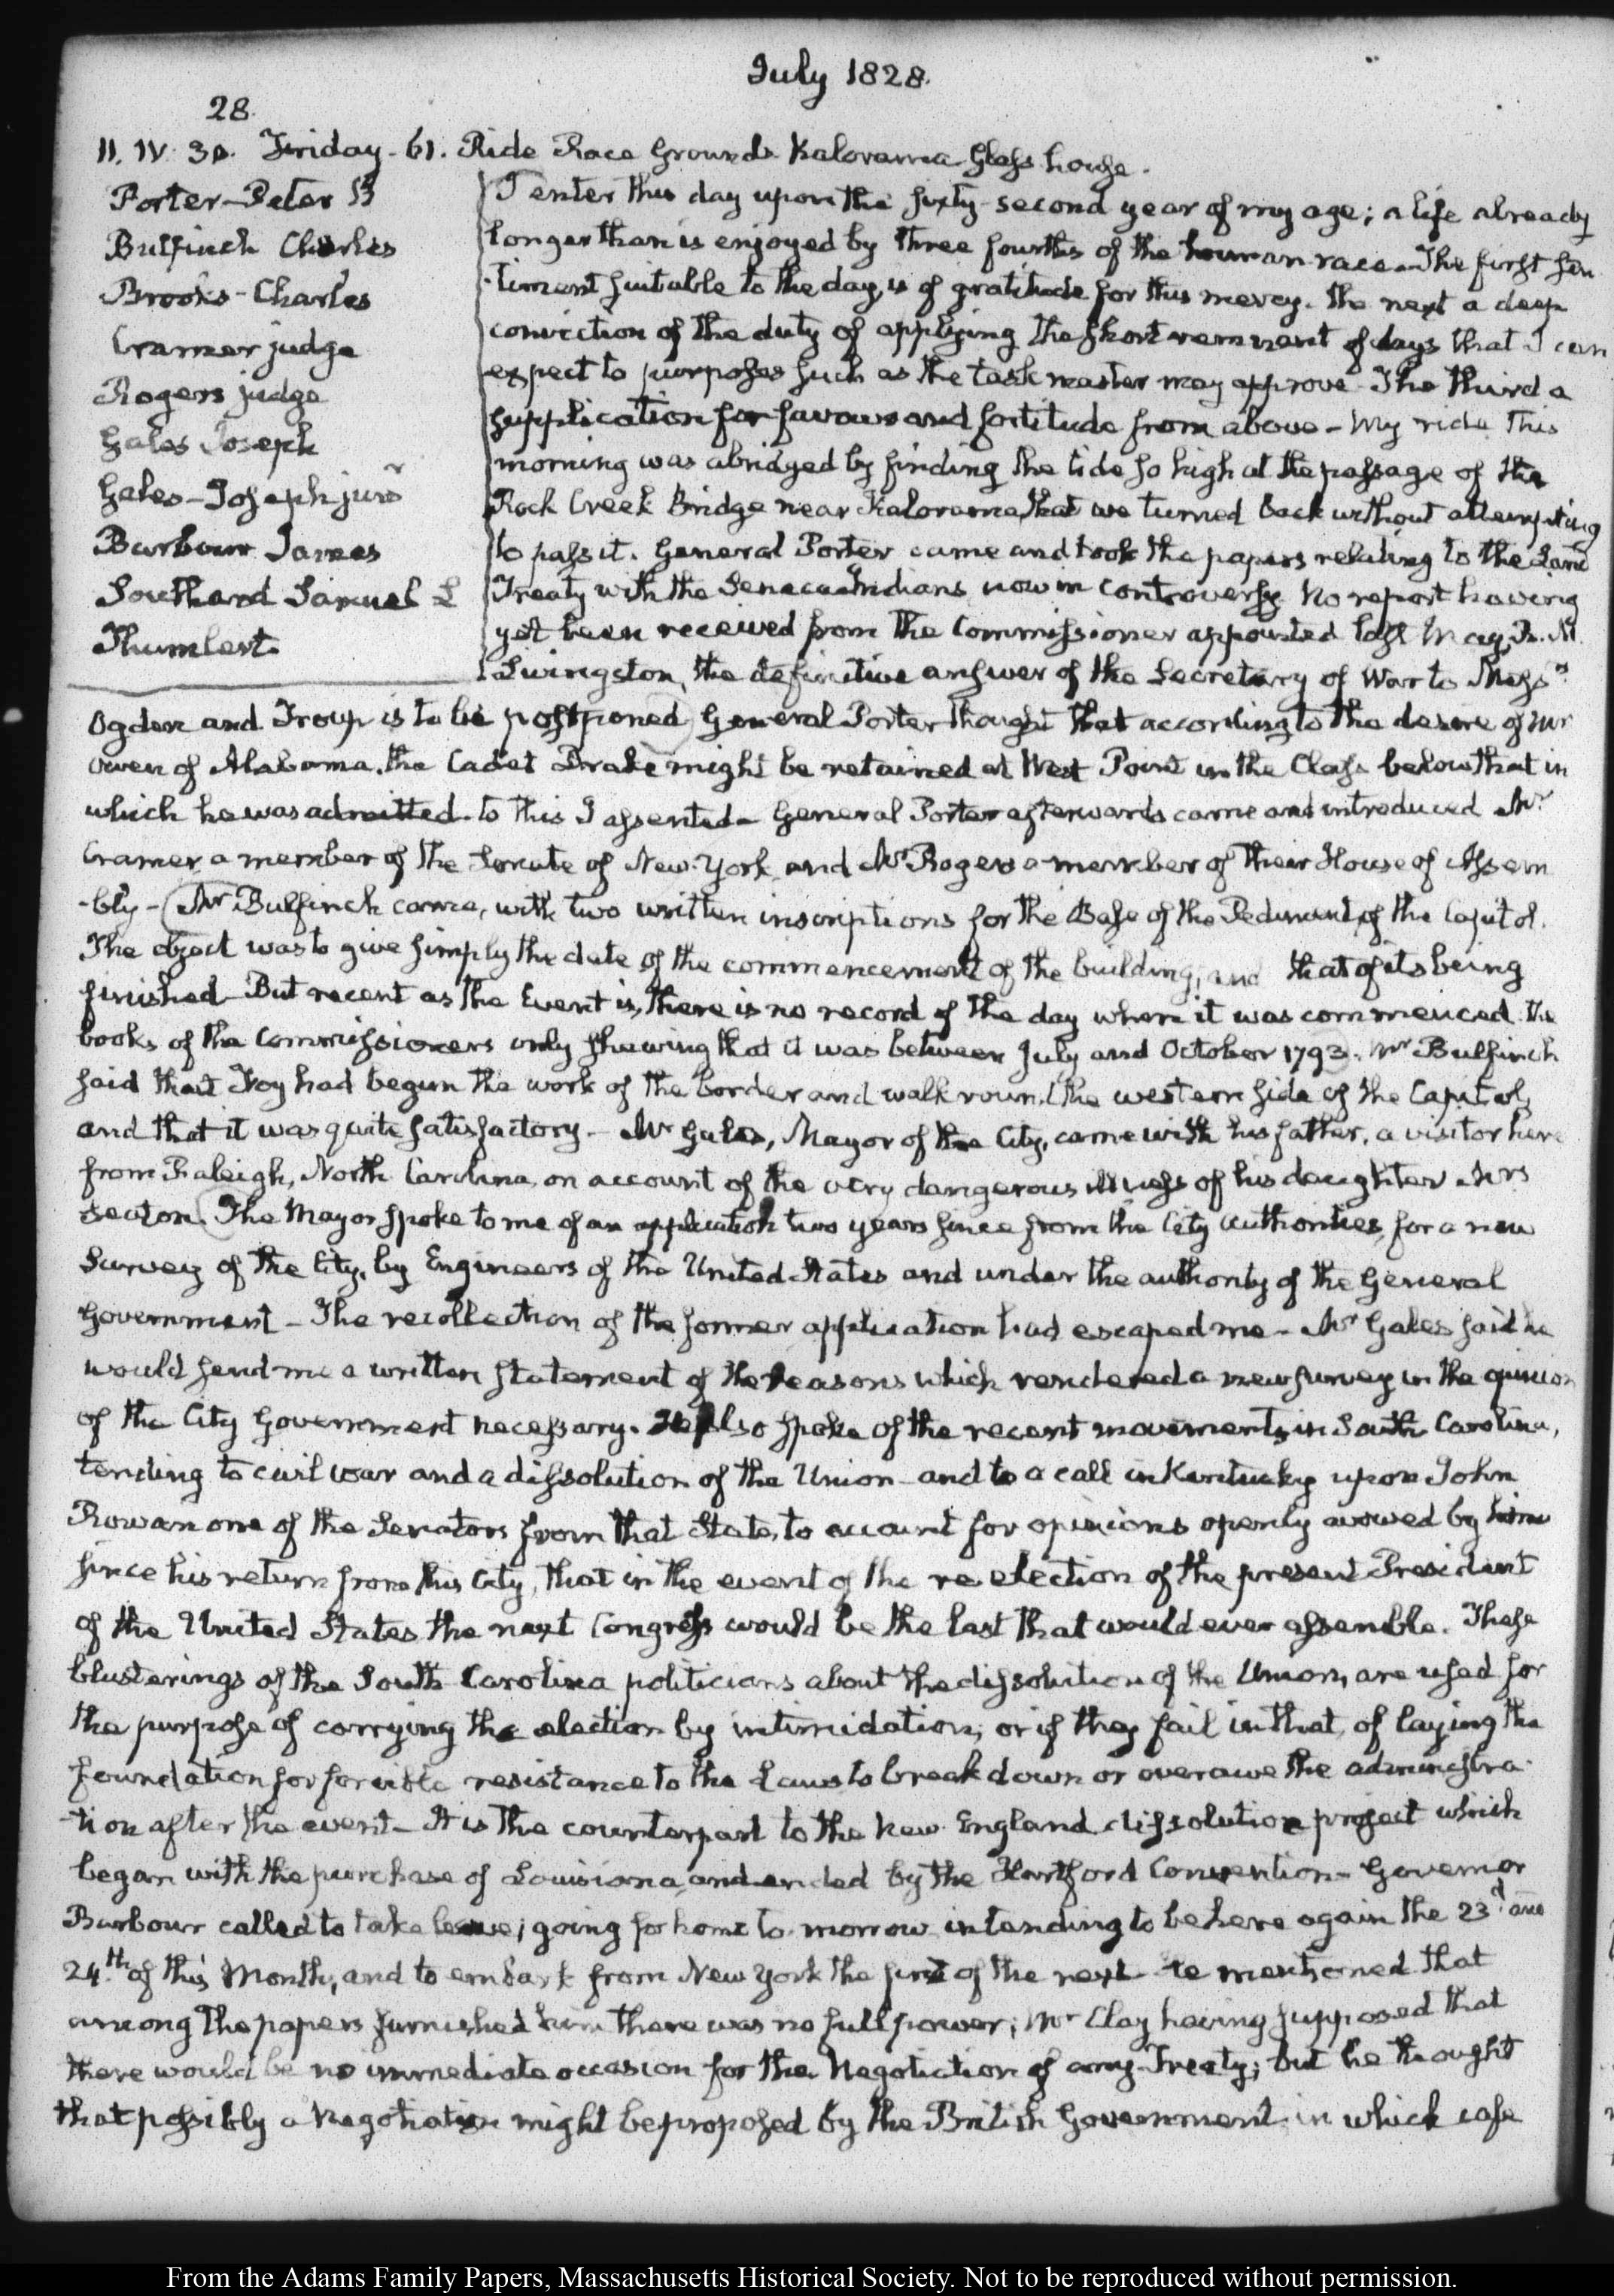 July 1828.
28.
11. IV. 30. Friday. 61. Ride Race Grounds. Kalorama Glass house.
Porter—Peter B
Bulfinch Charles
Brooks—Charles
Cramer judge
Rogers judge
Gales Joseph
Gales—Joseph junr
Barbour James
Southard Samuel L
Thumlert.
I enter this day upon the sixty-second year of my age; a life already
longer than is enjoyed by three fourths of the human race. The first sen
-timent suitable to the day, is of gratitude for this mercy. the next a deep
conviction of the duty of applying the short remnant of days that I can
expect to purposes such as the task master may approve. The third a
supplication for favours and fortitude from above—My ride this
morning was abridged by finding the tide so high at the passage of the
Rock Creek Bridge near Kalorama, that we turned back without attempting
to pass it. General Porter came and took the papers relating to the Land
Treaty with the Seneca Indians now in controversy. No report having
yet been received from the Commissioner appointed last May, R. M.
Livingston, the definitive answer of the Secretary of War to Messrs
Ogden and Troup is to be postponed) General Porter thought that according to the desire of Mr
Owen of Alabama, the Cadet Drake might be retained at West Point in the Class below that in
which he was admitted. to this I assented—General Porter afterwards came and introduced Mr
Cramer, a member of the Senate of New-York, and Mr Rogers a member of their House of Assem
-bly—(Mr Bulfinch came, with two written inscriptions for the Base of the Pediment of the Capitol.
The object was to give simply the date of the commencement of the building, and that of its being
finished—But recent as the Event is, there is no record of the day when it was commenced. the
books of the Commissioners only shewing that it was between July and October 1793. Mr Bulfinch
said that Foy had begun the work of the border and walk round the western side of the Capitol,
and that it was quite satisfactory.—Mr Gales, Mayor of the City, came with his father, a visitor here
from Raleigh, North Carolina, on account of the very dangerous illness of his daughter Mrs
Seaton. (The Mayor spoke to me of an application two years since from the City authorities, for a new
Survey of the City, by Engineers of the United States and under the authority of the General
Government—The recollection of the former application had escaped me—Mr Gales said he
would send me a written statement of the reasons which rendered a new survey in the opinion
of the City Government necessary. He also spoke of the recent movements in South Carolina,
tending to civil war and a dissolution of the Union—and to a call in Kentucky upon John
Rowan one of the Senators from that State, to account for opinions openly avowed by him
since his return from this City, that in the event of the re-election of the present President
of the United States the next Congress would be the last that would ever assemble. These
blusterings of the South Carolina politicians about the dissolution of the Union, are used for
the purpose of carrying the election by intimidation, or if they fail in that, of laying the
foundation for forcible resistance to the Laws to break down or overawe the administra-
-tion after the event—It is the counterpart to the New England dissolution project which
began with the purchase of Louisiana, and ended by the Hartford Convention—Governor
Barbour called to take leave; going for home to-morrow, intending to be here again the 23d. and
24th. of this Month, and to embark from New York the first of the next. He mentioned that
among the papers furnished him there was no full power; Mr Clay having supposed that
there would be no immediate occasion for the Negotiation of any Treaty; but he thought
that possibly a Negotiation might be proposed by the British Government in which case
From the Adams Family Papers, Massachusetts Historical Society. Not to be reproduced without permission.